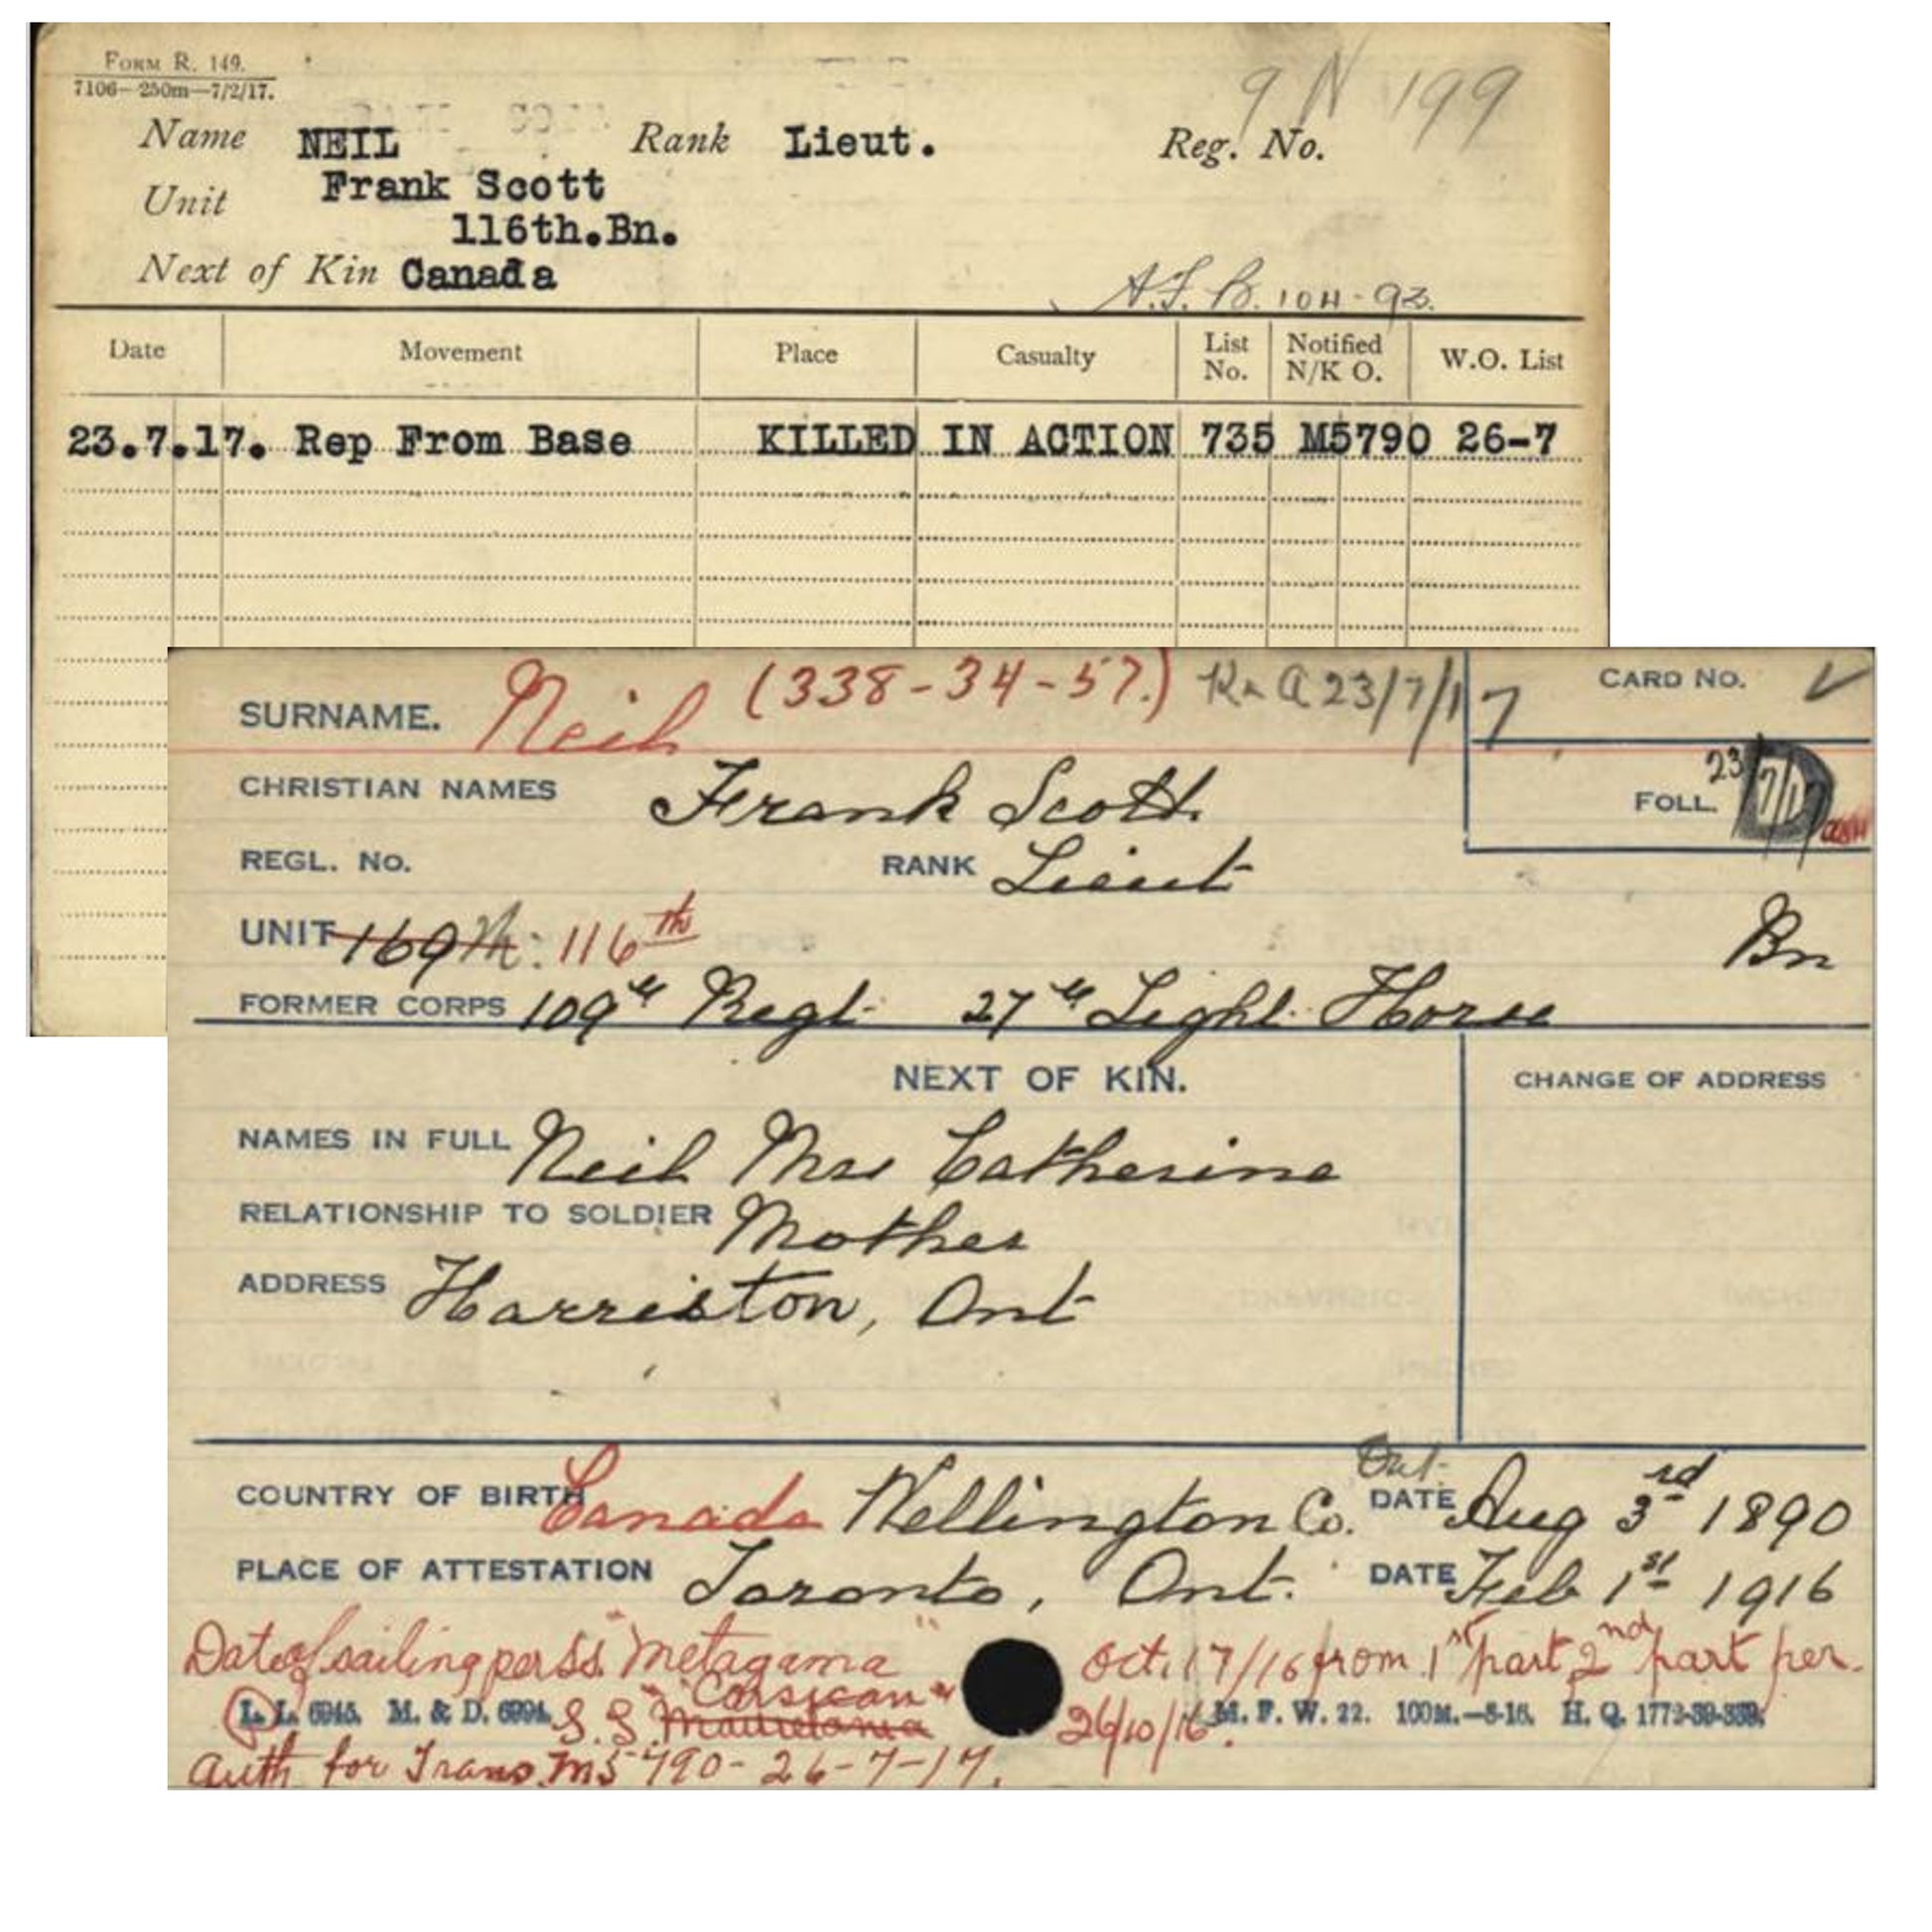 FORM R. 149.
7106—250m—7/2/17.
9 N 199
Name NEIL Rank Lieut. Reg. No.
Frank Scott
Unit 116th.Bn.
Next of Kin Canada
A.F.B. 104-93.
Date Movement Place Casualty List No. Notified N/K O. W.O. List
23.7.17. Rep From Base KILLED IN ACTION 735 M5790 26-7
SURNAME. Neil (338-34-57.) K in A 23/7/17 CARD NO.
CHRISTIAN NAMES Frank Scott
FOLL. 23/7/17 D
REGL. NO. RANK Lieut
UNIT 169th. 116th Bn
FORMER CORPS 109th Regt 27th Light Horse
NEXT OF KIN. CHANGE OF ADDRESS
NAMES IN FULL Neil Mrs Catherine
RELATIONSHIP TO SOLDIER Mother
ADDRESS Harriston, Ont
COUNTRY OF BIRTH Canada Wellington Co. Ont. DATE Aug 3rd 1890
PLACE OF ATTESTATION Toronto, Ont. DATE Feb 1st 1916
Date of sailing per S.S. "Metagama" Oct. 17/16 from 1st part 2nd part per.
L. L. 6945. M. & D. 6994. S.S. "Corsican" Mauretania 26/10/16. M. F. W. 22. 100M.—8-16. H. Q. 1772-39-339.
Auth for Trans. M5790-26-7-17.